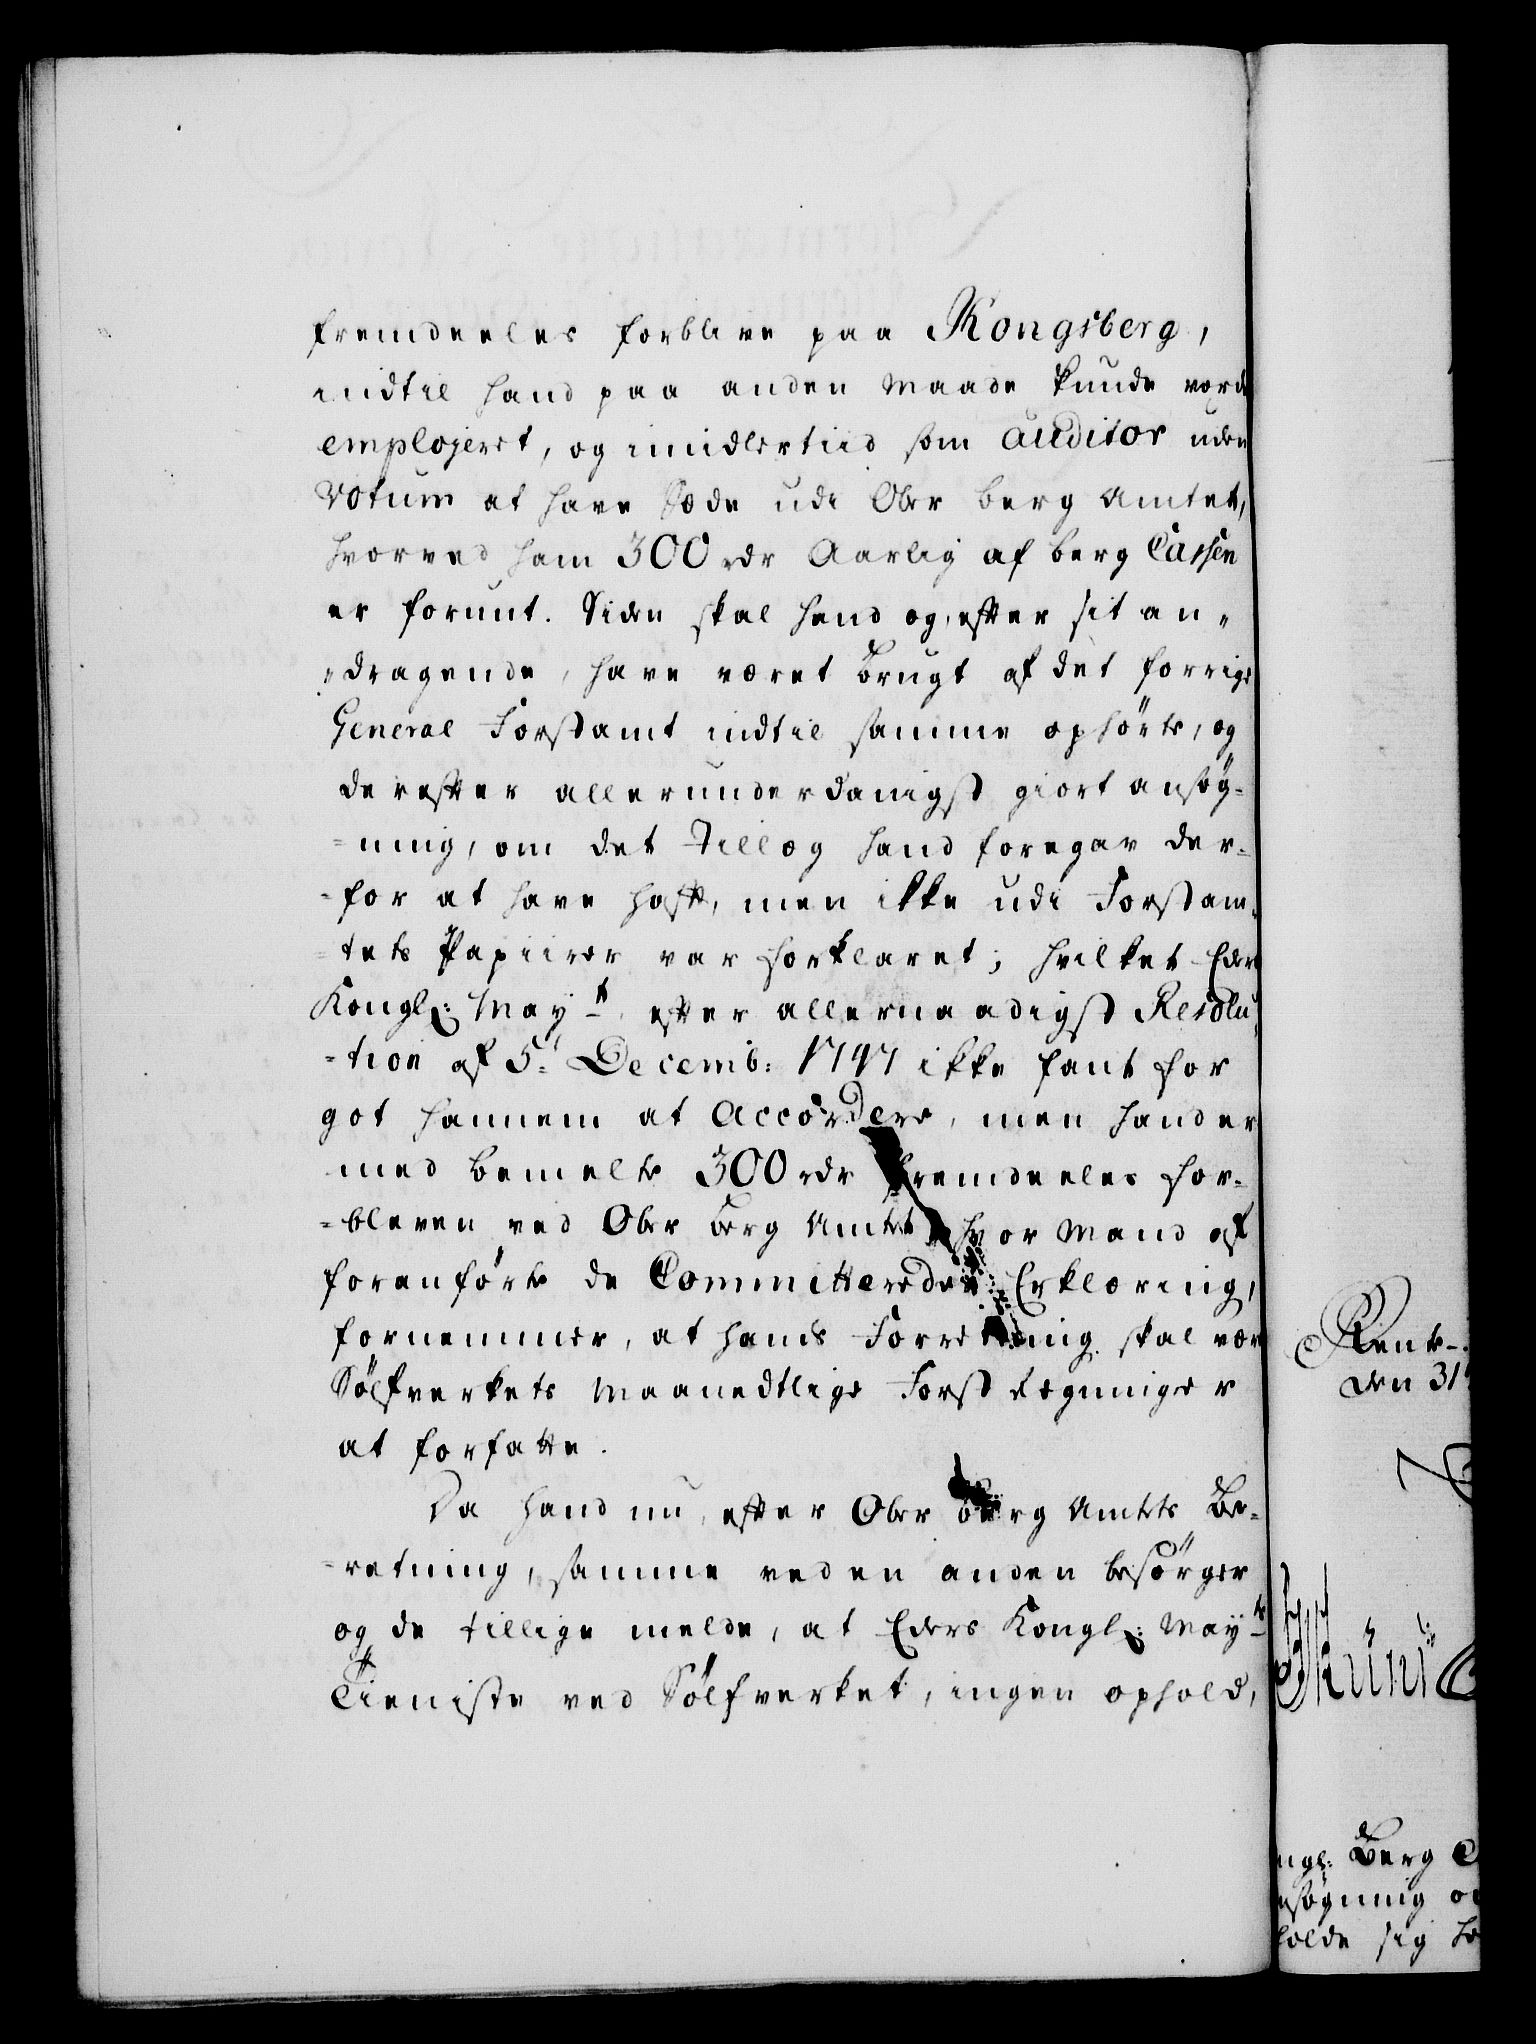 fremdeeles forblive paa Kongsberg,
indtil hand paa anden Maade kunde vorde
employeret, og imidlertiid som auditor uden
votum at have Sæde udi Ober berg Amtet,
hvorved ham 300 rdr Aarlig af berg Cassen
er forunt. Siden skal hand og, efter sit an„
„dragende, have været brugt af det forrige
General Forstamt indtil samme ophørte, og
derefter allerunderdanigst giort ansøg-
-ning, om det Tillæg hand foregav der-
-for at have haft, men ikke udi Forstam-
-tets Papiirer var forklaret; hvilket Eders
Kongl: Mayt. efter allernaadigst Resolu-
-tion af 5t Decemb: 1747 ikke fant for
got hannem at Accordere, men hand er
med bemelte 300 rdr fremdeeles for-
-bleven ved Ober Berg Amtet hvor Mand af
foranførte de Committeredes Erklæring,
fornemmer, at hands Forretning skal være
Sølfverkets Maanedtlige Forst Regninger
at forfatte.
Da hand nu, efter Ober berg Amtets Be-
-retning, samme ved en anden besørger
og de tillige melde, at Eders Kongl: Mayts
Tieniste ved Sølfverket, ingen ophold,
Rente-
den 31
ngl: Berg
nsøgning
holde sig